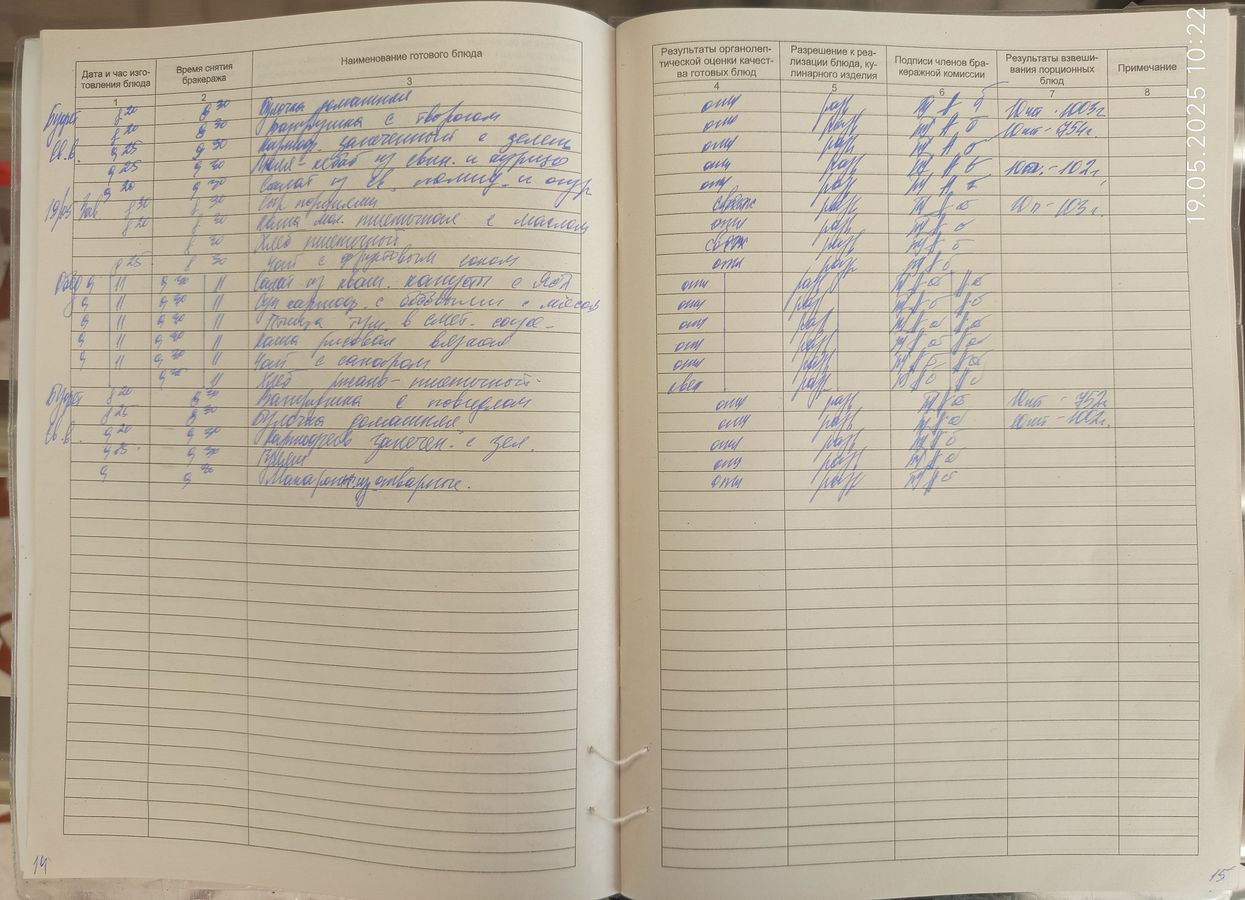 Дата и час изго-
товления блюда
Время снятия
бракеража
Наименование готового блюда
1 2 3
Буфет 8 20 8 30 Булочка домашняя
8 20 8 30 Ватрушка с творогом
Св. в. 9 25 9 30 Картоф. запеченный с зелен
9 25 9 30 Люля-кебаб из свин. и
9 20 9 30 Салат из св. помид. и огур
19/05 Зав 8 20 8 30 Сыр порциями
8 20 8 30 Каша мол. пшеничная с маслом
8 30 Хлеб пшеничный
8 25 8 30 Чай с фруктовым соком
Обед 9 11 9 30 11 Салат из кваш. капусты с
9 11 9 30 11 Суп картоф. с бобовыми с мясом
9 11 9 30 11 Птица туш. в смет. соусе
9 11 9 30 11 Каша рисовая вязкая
9 11 9 30 11 Чай с сахаром
9 30 11 Хлеб ржано-пшеничный
Буфет 8 20 8 30 Ватрушка с повидлом
8 25 8 30 Булочка домашняя
Св. в. 9 20 9 30 Картофель запечен. с зел.
9 25 9 30
9 9 30 Макарон. изд. отварные.
14
Результаты органолеп-
тической оценки качест-
ва готовых блюд
Разрешение к реа-
лизации блюда, ку-
линарного изделия
Подписи членов бра-
керажной комиссии
Результаты взвеши-
вания порционных
блюд
Примечание
4 5 6 7 8
отл разр 10шт - 1003г
отл разр 10шт - 754г.
отл разр
отл разр 10шт. - 102г
отл разр
свеж разр 10п - 103г.
отл разр
свеж разр
отл разр
отл разр
отл разр
отл разр
отл разр
отл разр
свеж разр
отл разр 10шт - 752г
отл разр 10шт - 1002г.
отл разр
отл разр
отл разр
15
19.05.2025 10:22